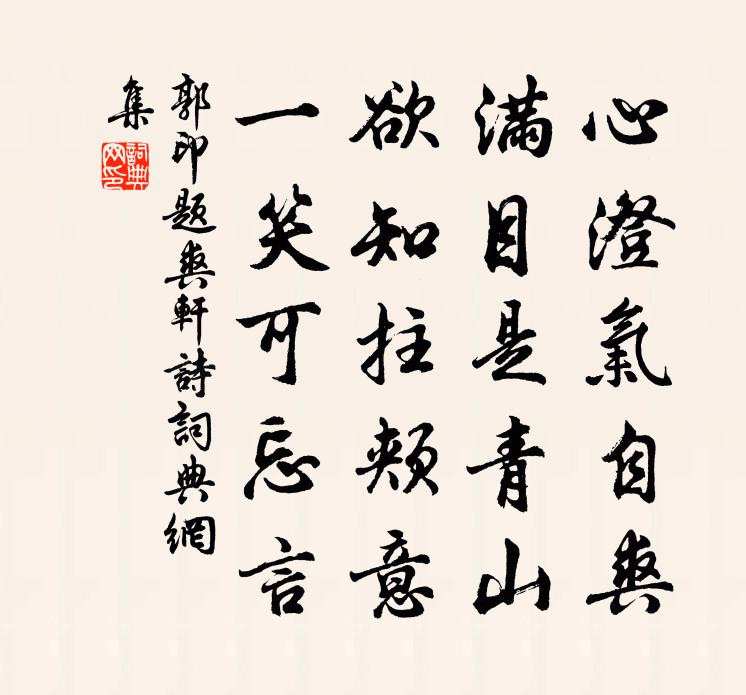 心澄氣自爽
滿目是青山
欲知拄頰意
一笑可忘言
郭印題爽軒詩詞典網
集
詞典網印